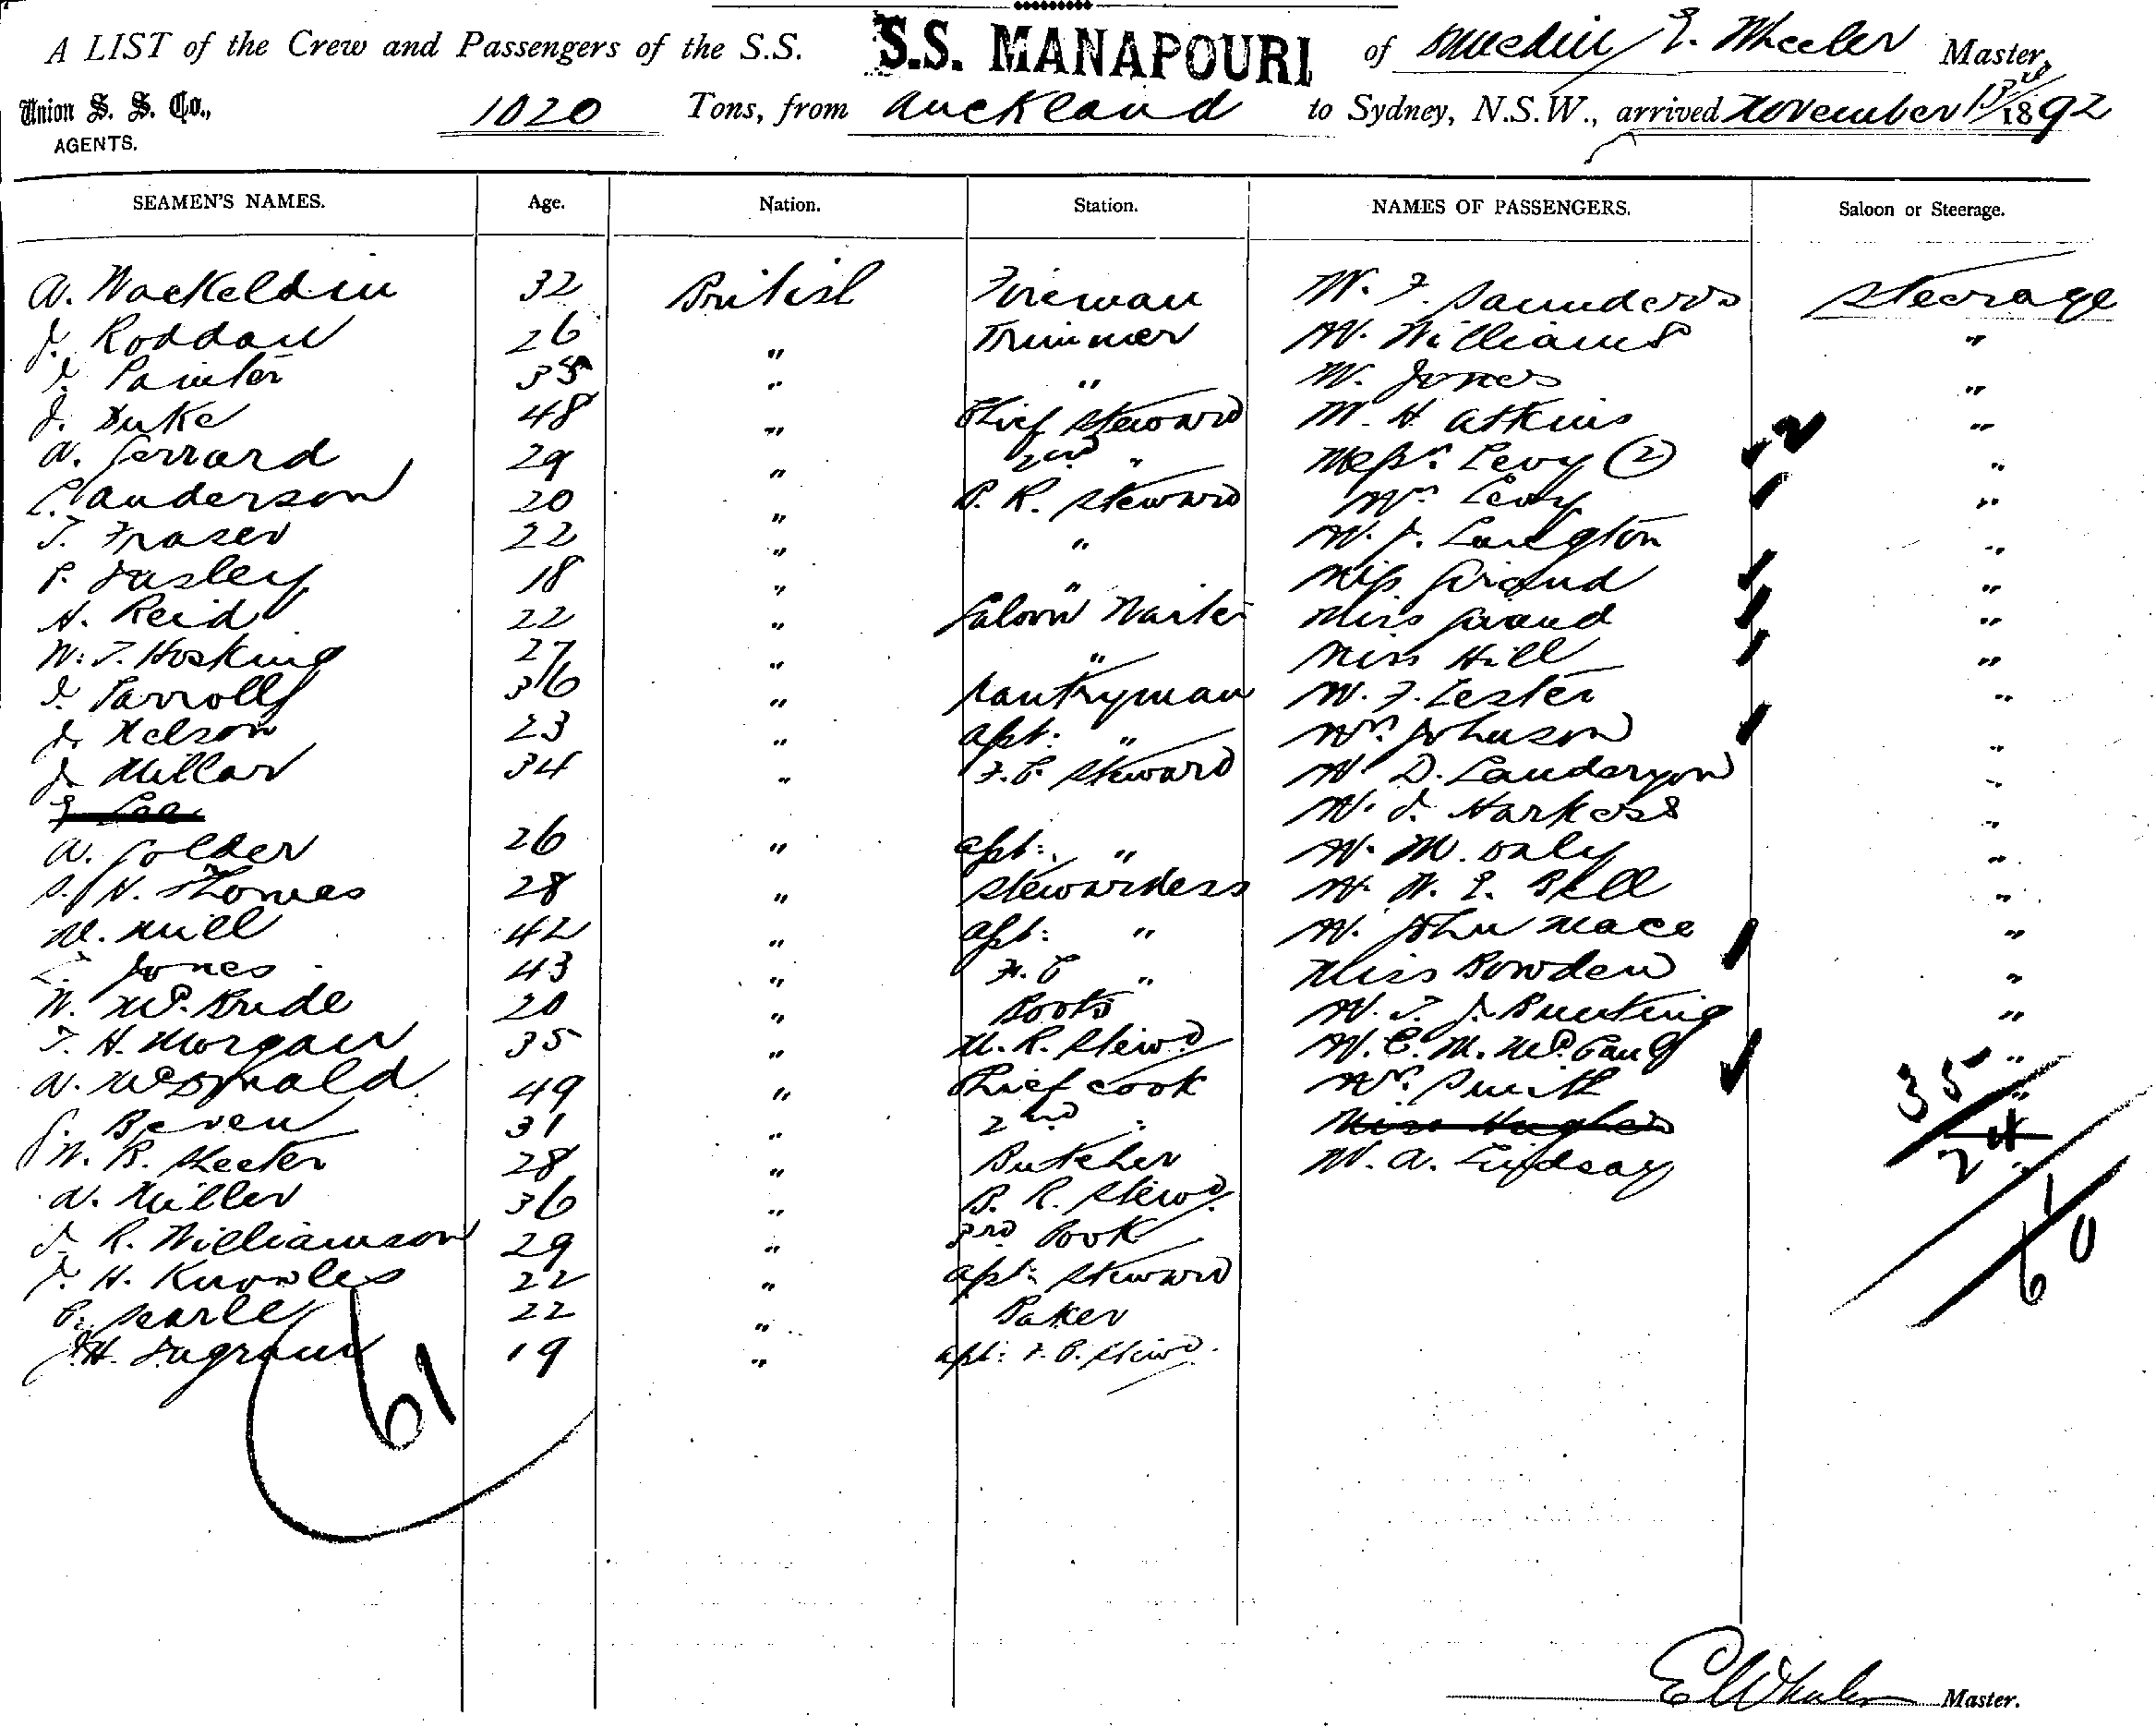 A LIST of the Crew and Passengers of the S.S. S.S. MANAPOURI of Dunedin, E. Wheeler Master,
Union S. S. Co., 1020 Tons, from Auckland to Sydney, N.S.W., arrived November 13th 1892
AGENTS.
SEAMEN'S NAMES. Age. Nation. Station. NAMES OF PASSENGERS. Saloon or Steerage.
A. 32 British Fireman Mr. F. Saunders Steerage
J. Roddan 26 " Trimmer Mr. Williams "
J. Painter 35 " " Mr. Jones "
J. Duke 48 " Chief Steward Mr. H. Atkins "
A. Gerrard 29 " 2nd " Messrs. Levy (2) 2 "
C. Anderson 20 " B. R. Steward Mrs Levy "
T. Fraser 22 " " Mr. J. Langton "
P. 18 " " Miss Giraud "
H. Reid 22 " Saloon Waiter Miss Giraud "
W. T. Hosking 27 " " Miss Hill "
J. 36 " Pantryman Mr. F. Lester "
J. Nelson 23 " Asst: " Mrs Johnson "
J. Millar 34 " F. C. Steward Mr D. "
Lee Mr. J. Harkess "
A. Golder 26 " Asst: " Mr. M. Daly "
S. H. Thomas 28 " Stewardess Mr. W. E. Bell "
M. 42 " Asst: " Mr. John Mace "
Jones 43 " F. C " Miss Bowden "
W. McBride 20 " Boots Mr. T. J. Bunting "
T. H. Morgan 35 " M. R. Stewd Mr. C. M. "
A. McDonald 49 " Chief Cook Mrs Smith "
Beven 31 " 2nd " Miss Hughes
W. R. 28 " Butcher Mr. A. Lindsay
A. Miller 36 " B. R. Stewd
J. R. Williamson 29 " 3rd Cook
J. H. Knowles 22 " Asst: Steward
C. Searle 22 " Baker
J. H. 19 " Asst: F. C. Stewd
35
24
61
60
E Wheeler Master.